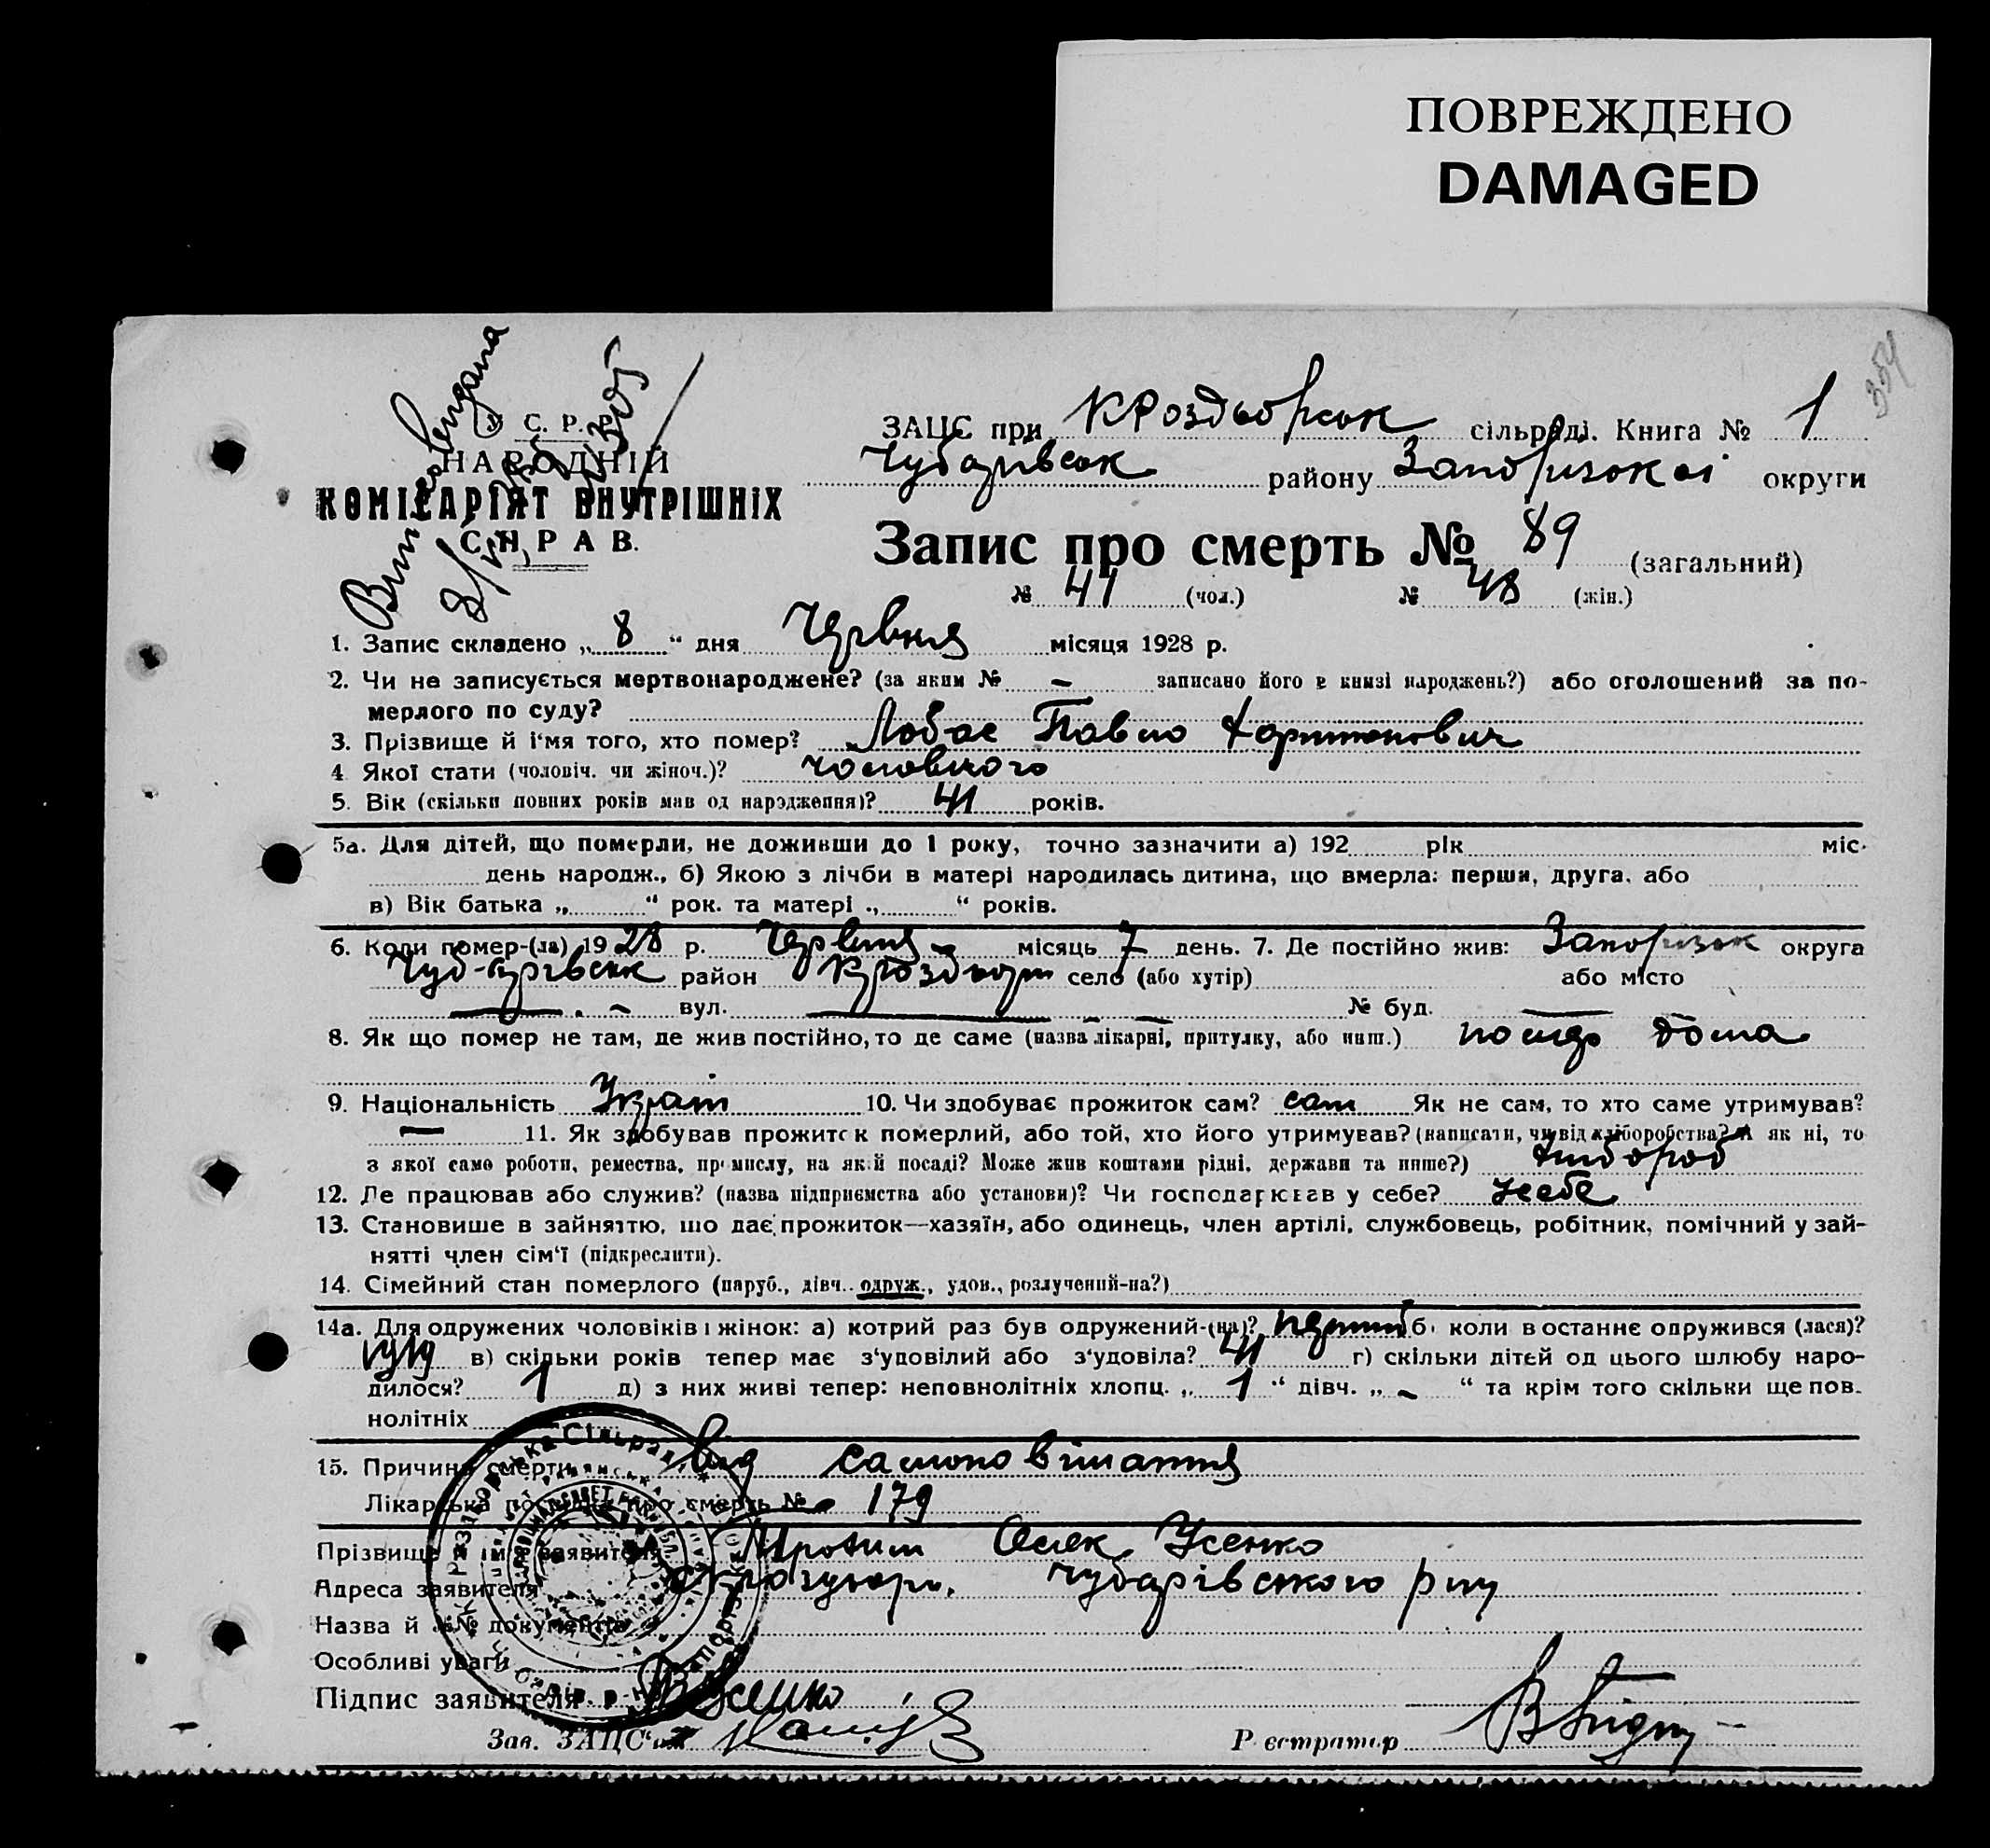 ПОВРЕЖДЕНО
DAMAGED
354
У С. Р. Р.
НАРОДНІЙ
КОМІСАРІЯТ ВНУТРІШНІХ
СПРАВ.
ЗАЦС при К Роздьорськ сільраді. Книга № 1
Чубарівськ району Запоризокоі округи
Запис про смерть № 89 (загальний)
№ 41 (чол.) № 48 (жін.)
1. Запис складено „ 8 “ дня Червня місяця 1928 р.
2. Чи не записується мертвонароджене? (за яким № – записано його в книзі народжень?) або оголошений за по-
мерлого по суду?
3. Прізвище й і'мя того, хто помер? Лобас Павло Харитонович
4 Якої стати (чоловіч. чи жіноч.)? чоловічого
5. Вік (скільки повних років мав од народження)? 41 років.
5а. Для дітей, що померли, не доживши до 1 року, точно зазначити а) 192 рік міс.
день народж., б) Якою з лічби в матері народилась дитина, що вмерла: перша, друга, або
в) Вік батька „ “ рок. та матері „ “ років.
6. Коли помер-(ла) 19 28 р. Червня місяць 7 день. 7. Де постійно жив: Запоризьк округа
Чуб-арівськ район село (або хутір) або місто
вул. № буд.
8. Як що помер не там, де жив постійно, то де саме (назва лікарні, притулку, або инш.) дома
9. Національність Україн 10. Чи здобуває прожиток сам? сам Як не сам, то хто саме утримував?
— 11. Як здобував прожиток померлий, або той, хто його утримував? (написати, чи від хліборобства? А як ні, то
з якої само роботи, ремества, промислу, на якій посаді? Може жив коштами рідні, держави та инше?) хлібороб
12. Де працював або служив? (назва підприємства або установи)? Чи господарював у себе? у себе
13. Становище в зайняттю, що дає прожиток—хазяїн, або одинець, член артілі, службовець, робітник, помічний у зай-
нятті член сім'ї (підкреслити).
14. Сімейний стан померлого (паруб., дівч., одруж., удов., розлучений-на?)
14а. Для одружених чоловіків і жінок: а) котрий раз був одружений-(на)? перший б) коли востаннє одружився (лася)?
1919 в) скільки років тепер має з'удовілий або з'удовіла? 41 г) скільки дітей од цього шлюбу наро-
дилося? 1 д) з них живі тепер: неповнолітніх хлопц. „ 1 “ дівч. „ – “ та крім того скільки ще пов.
нолітніх
15. Причина смерти Від самоповішання
Лікарська посвідка про смерть № 179
Прізвище й ім'я заявителя Олек Усенко
Адреса заявителя Чубарівського р-ну
Назва й № документів
Особливі уваги
Підпис заявителя Усенко
Зав. ЗАЦС'ом
Реєстратор